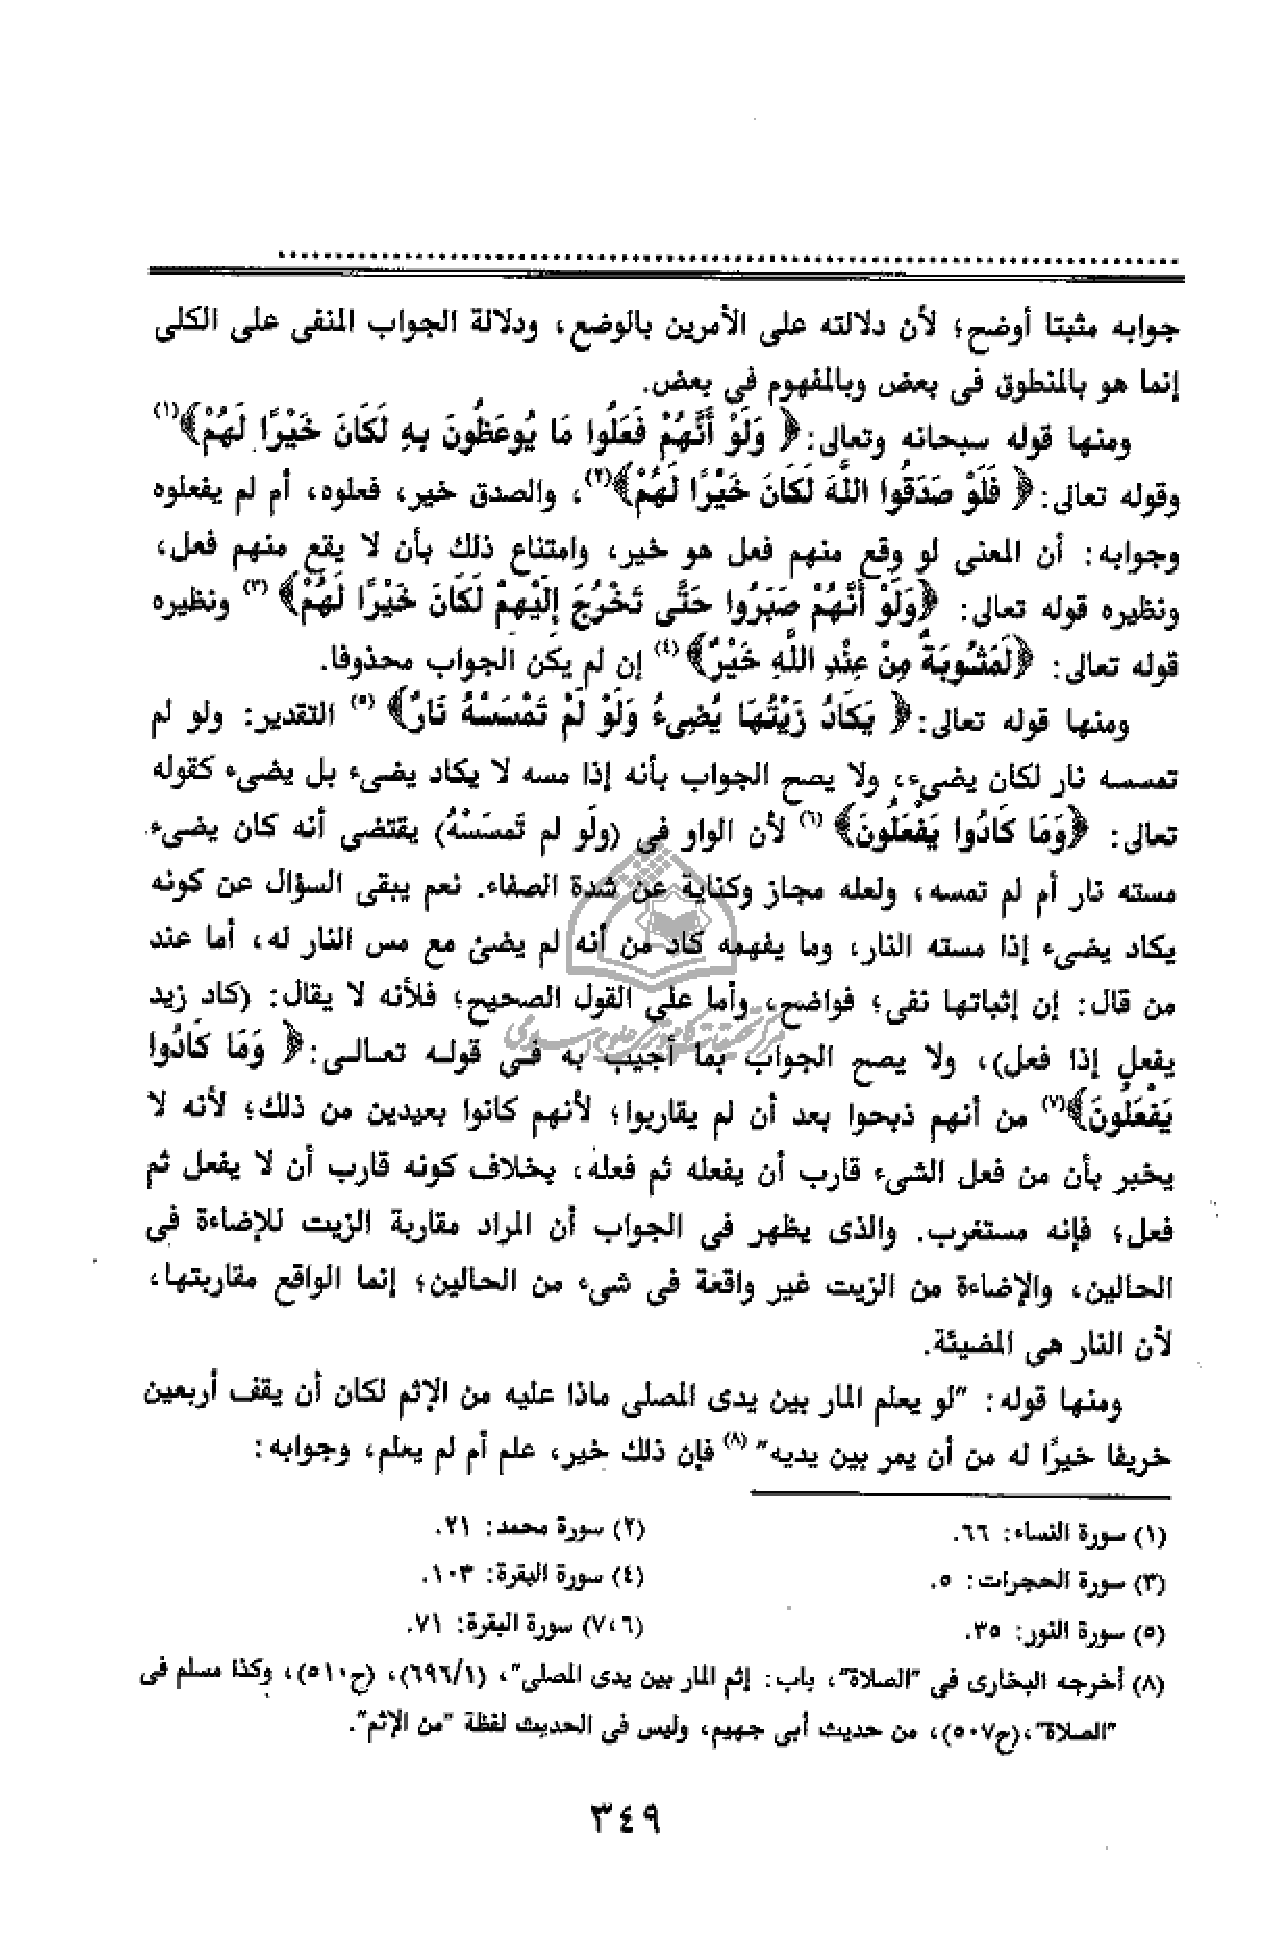 جوابه مثبتا أوضح؛ لأن دلالته على الأمرين بالوضع، ودلالة الجواب المنفى على الكلى
إنما هو بالمنطوق فى بعض وبالمفهوم فى بعض.
ومنها قوله سبحانه وتعالى:﴿ وَلَوْ أَنَّهُمْ فَعَلُوا مَا يُوعَظُونَ بِهِ لَكَانَ خَيْرًا لَهُمْ﴾(١)
وقوله تعالى:﴿ فَلَوْ صَدَقُوا اللَّهَ لَكَانَ خَيْرًا لَهُمْ﴾(٢)، والصدق خير، فعلوه، أم لم يفعلوه
وجوابه: أن المعنى لو وقع منهم فعل هو خير، وامتناع ذلك بأن لا يقع منهم فعل،
ونظيره قوله تعالى: ﴿وَلَوْ أَنَّهُمْ صَبَرُوا حَتَّى تَخْرُجَ إِلَيْهِمْ لَكَانَ خَيْرًا لَهُمْ﴾ (٣) ونظيره
قوله تعالى: ﴿لَمَثُوبَةٌ مِنْ عِنْدِ اللَّهِ خَيْرٌ﴾(٤) إن لم يكن الجواب محذوفا.
ومنها قوله تعالى:﴿ يَكَادُ زَيْتُهَا يُضِىءُ وَلَوْ لَمْ تَمْسَسْهُ نَارٌ﴾ (٥) التقدير: ولو لم
تمسسه نار لكان يضىء، ولا يصح الجواب بأنه إذا مسه لا يكاد يضىء بل يضىء كقوله
تعالى: ﴿وَمَا كَادُوا يَفْعَلُونَ﴾ (٦) لأن الواو فى (ولَو لم تَمسَسْهُ) يقتضى أنه كان يضىء
مسته نار أم لم تمسه، ولعله مجاز وكناية عن شدة الصفاء. نعم يبقى السؤال عن كونه
يكاد يضىء إذا مسته النار، وما يفهمه كاد من أنه لم يضئ مع مس النار له، أما عند
من قال: إن إثباتها نفى؛ فواضح، وأما على القول الصحيح؛ فلأنه لا يقال: (كاد زيد
يفعل إذا فعل)، ولا يصح الجواب بما أجيب به فى قوله تعالى:﴿ وَمَا كَادُوا
يَفْعَلُونَ﴾(٧) من أنهم ذبحوا بعد أن لم يقاربوا؛ لأنهم كانوا بعيدين من ذلك؛ لأنه لا
يخبر بأن من فعل الشىء قارب أن يفعله ثم فعله، بخلاف كونه قارب أن لا يفعل ثم
فعل؛ فإنه مستغرب. والذى يظهر فى الجواب أن المراد مقاربة الزيت للإضاءة فى
الحالين، والإضاءة من الزيت غير واقعة فى شىء من الحالين؛ إنما الواقع مقاربتها،
لأن النار هى المضيئة.
ومنها قوله: "لو يعلم المار بين يدى المصلى ماذا عليه من الإثم لكان أن يقف أربعين
خريفا خيرًا له من أن يمر بين يديه" (٨) فإن ذلك خير، علم أم لم يعلم، وجوابه:
(١) سورة النساء: ٦٦.
(٢) سورة محمد: ٢١.
(٣) سورة الحجرات: ٥.
(٤) سورة البقرة: ١٠٣.
(٥) سورة النور: ٣٥.
(٧،٦) سورة البقرة: ٧١.
(٨) أخرجه البخارى فى "الصلاة"، باب: إثم المار بين يدى المصلى"، (٦٩٦/١)، (ح٥١٠)، وكذا مسلم فى
"الصلاة"،(ح٥٠٧)، من حديث أبى جهيم، وليس فى الحديث لفظة "من الإثم".
٣٤٩